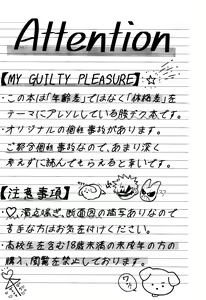 Attention
【MY GUILTY PLEASURE】
・この本は「年齢差」ではなく「体格差」を
テーマにアレンジしている陰デク本です。
・オリジナルの個性事故があります。
ご都合個性事故なので、あまり深く
考えずに読んでもらえるとさいわいです。
【注意事項】
・♡、濁点喘ぎ、断面図の描写ありなので
苦手な方はお気を付けください。
・高校生を含む18歳未満の未成年の方の
購入、閲覧を禁止しております。